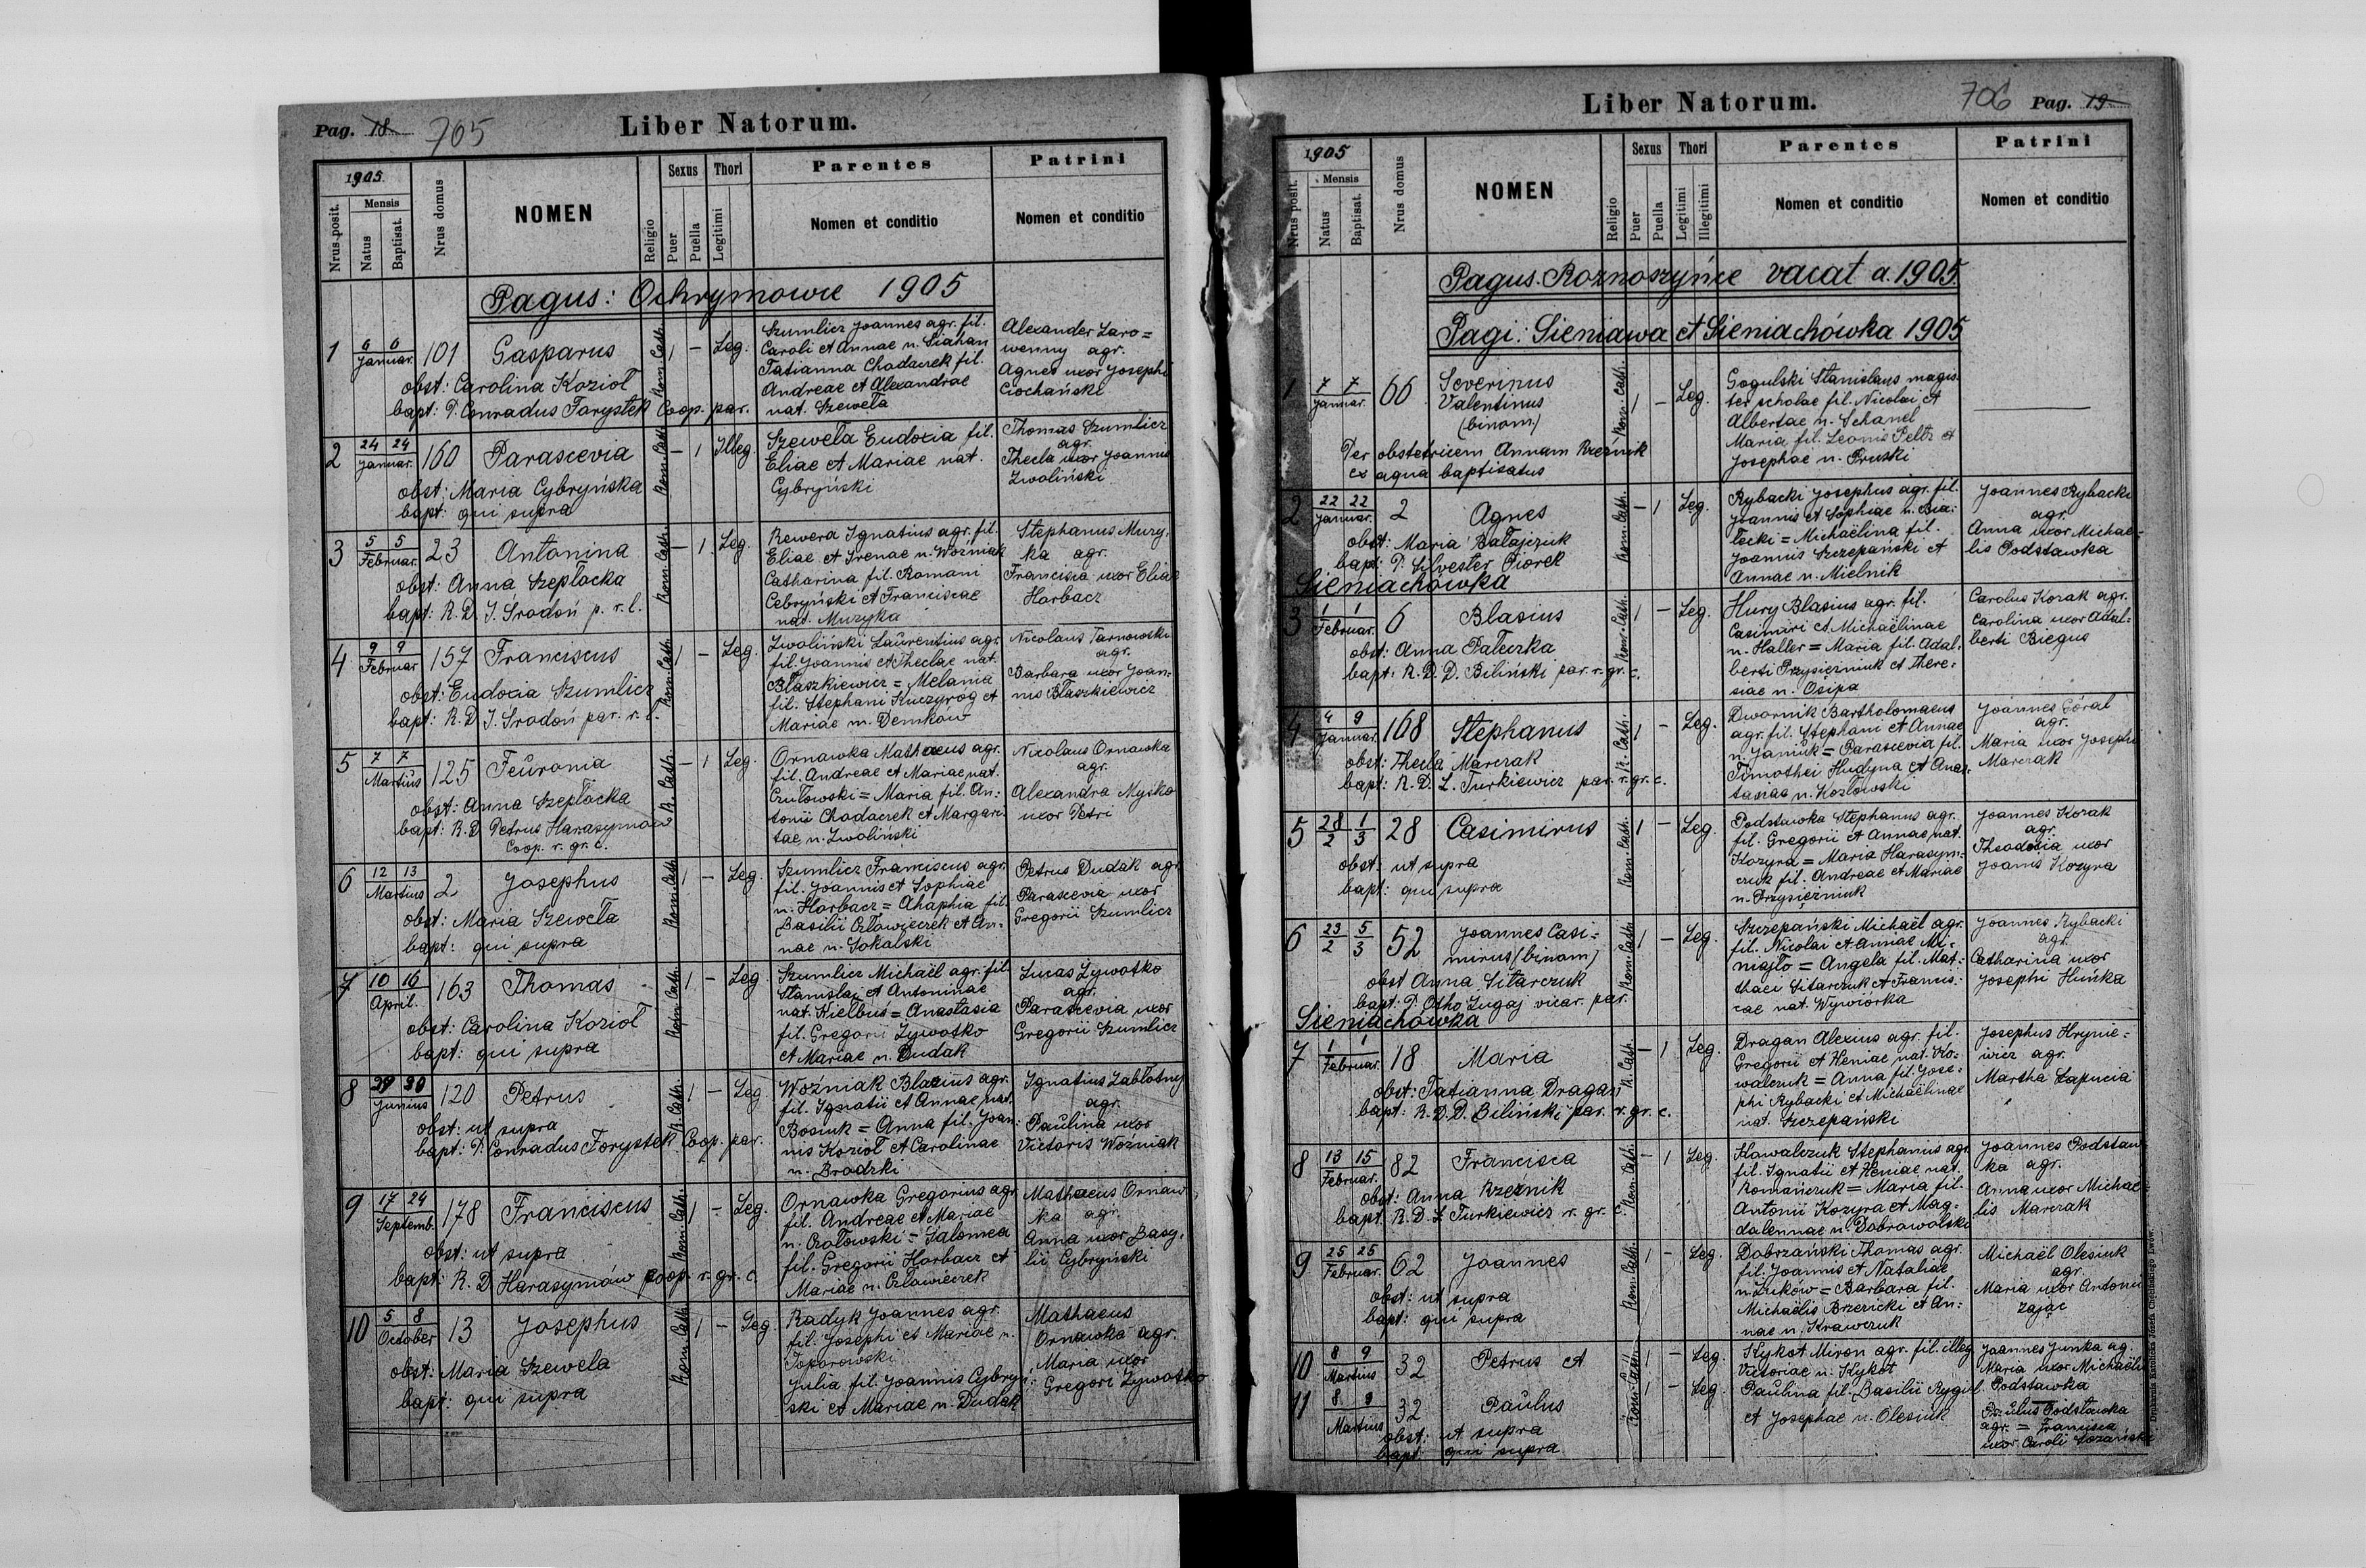 Pag. 18 705
Liber Natorum.
1905
Nrus posit.
Mensis
Natus
Baptisat.
Nrus domus
NOMEN
Religio
Sexus
Puer
Puella
Thori
Legitimi
Parentes
Nomen et conditio
Patrini
Nomen et conditio
Pagus: Ochrymowce 1905
1 6 6 Januar. 101 Gasparus Rom. Cath. 1 - Leg.
obst: Carolina Kozioł
bapt: P. Conradus Forystek Coop. par.
Szumlicz Joannes agr. fil.
Caroli et Annae n.
Tatianna Chodaczek fil.
Andreae et Alexandrae
nat. Szeweła
Alexander Zaro=
wenny agr.
Agnes uxor Josephi
Ciochański
2 24 24 Januar. 160 Parascevia Rom. Cath. - 1 Illeg.
obst: Maria Cybryńska
bapt: qui supra
Szeweła Eudocia fil.
Eliae et Mariae nat.
Cybryński
Thomas Szumlicz
agr.
Thecla uxor Joannis
Zwoliński
3 5 5 Februar. 23 Antonina Rom. Cath. - 1 Leg.
obst: Anna Szepłocka
bapt: R. D. J. Srodoń p. r. l.
Rewera Ignatius agr. fil.
Eliae et Irenae n. Woźniak
Catharina fil. Romani
Cebryński et Franciscae
nat. Muzyka
Stephanus Muzy,
ka agr.
Francisca uxor Eliae
Horbacz
4 9 9 Februar 157 Franciscus Rom. Cath. 1 - Leg.
obst: Eudocia Szumlicz
bapt: R. D. J. Srodoń par. r. l.
Zwoliński Laurentius agr.
fil. Joannis et Theclae nat.
Błaszkiewicz = Melania
fil. Stephani Kuczyrog et
Mariae n. Demków
Nicolaus Tarnowski
agr.
Barbara uxor Joan=
nis Błaszkiewicz
5 7 7 Martius 125 Feuronia R. Cath. - 1 Leg.
obst: Anna Szepłocka
bapt: R. D. Petrus Harasymów
Coop. r. gr. c.
Ornawka Mathaeus agr.
fil. Andreae et Mariae nat.
Czułowski = Maria fil. An:
tonii Chodaczek et Margari
tae n. Zwoliński
Nicolaus Ornawka
agr.
Alexandra Nyśko
uxor Petri
6 12 13 Martius 2 Josephus Rom. Cath. 1 - Leg.
obst: Maria Szeweła
bapt: qui supra
Szumlicz Franciscus agr.
fil. Joannis et Sophiae
n. Horbacz = Ahaphia fil.
Basilii Człowieczek et An=
nae n. Sokalski
Petrus Dudak agr
Parascevia uxor
Gregorii Szumlicz
7 10 16 April. 163 Thomas Rom. Cath. 1 - Leg
obst: Carolina Kozioł
bapt: qui supra
Szumlicz Michaël agr. fil.
Stanislai et Antoninae
nat. Kiełbus = Anastasia
fil. Gregorii Żywotko
et Mariae n. Dudak
Lucas Żywotko
agr.
Parascevia uxor
Gregorii Szumlicz
8 29 30 Junius 120 Petrus R. Cath. 1 - Leg
obst: ut supra
bapt: P. Conradus Forystek Coop. par.
Woźniak Blasius agr.
fil. Ignatii et Annae nat.
Bosiuk = Anna fil. Joan=
nis Kozioł et Carolinae
n. Brodzki
Ignatius Zabłotny
agr.
Paulina uxor
Victoris Woźniak
9 17 24 Septemb. 178 Franciscus Rom. Cath. 1 - Leg.
obst: ut supra
bapt: R. D. Harasymów Coop. r. gr. c.
Ornawka Gregorius agr.
fil. Andreae et Mariae
n. Czołowski = Salomea
fil. Gregorii Horbacz et
Mariae n. Człowieczek
Mathaeus Ornaw
ka agr.
Anna uxor Basy,
lii Cybryński
10 5 8 October 13 Josephus Rom. Cath. 1 - Leg.
obst: Maria Szewela
bapt: qui supra
Radyk Joannes agr.
fil. Josephi et Mariae n.
Toporowski
Julia fil. Joannis Cybryń:
ski et Mariae n. Dudek
Mathaeus
Ornawka agr.
Maria uxor
Gregorii Żywotko
Liber Natorum.
706 Pag. 19
1905
Nrus posit.
Mensis
Natus
Baptisat.
Nrus domus
NOMEN
Religio
Sexus
Puer
Puella
Thori
Legitimi
Illegitimi
Parentes
Nomen et conditio
Patrini
Nomen et conditio
Pagus. Roznoszyńce vacat a. 1905.
Pagi: Sieniawa et Sieniachówka 1905
1 7 7 Januar. 66 Severinus
Valentinus
(binom) Rom. Cath. 1 - Leg.
Per obstetricem Annam Rzeźnik
ex aqua baptisatus
Gogulski Stanislaus magis:
ter scholae fil. Nicolai et
Albertae n. Schanel
Maria fil. Leonis Peltz et
Josephae n. Pruski
2 22 22 Januar. 2 Agnes Rom. Cath. - 1 Leg.
obst: Maria Bałajczuk
bapt: P. Silvester Piorek
Rybacki Josephus agr. fil.
Joannis et Sophiae n. Bia:
łecki = Michaëlina fil.
Joannis Szczepański et
Annae n. Mielnik
Joannes Rybacki
agr.
Anna uxor Michae=
lis Podstawka
Sieniachówka
3 1 1 Februar. 6 Blasius Rom. Cath. 1 - Leg.
obst: Anna Pałeczka
bapt: R. D. D. Biliński par. r. gr. c.
Hury Blasius agr. fil.
Casimiri et Michaëlinae
n. Haller = Maria fil. Adal,
berti Przysiężniuk et There=
siae n. Osipa
Carolus Kozak agr.
Carolina uxor Adal=
berti Biegus
4 4 9 Januar. 168 Stephanus R. Cath. 1 - Leg.
obst: Thecla Marczak
bapt: R. D. L. Turkiewicz par. r. gr. c.
Dwornik Bartholomaeus
agr. fil. Stephani et Annae
n. Janiuk = Parascevia fil.
Timothei Hudyna et Anas=
tasiae n. Kozłowski
Joannes Góral
agr.
Maria uxor Josephi
Marczak
5 28 2 1 3 28 Casimirus Rom. Cath. 1 - Leg.
obst: ut supra
bapt: qui supra
Podstawka Stephanus agr.
fil. Gregorii et Annae nat.
Kozyra = Maria Harasym=
czuk fil. Andreae et Mariae
n. Przysiężniuk
Joannes Kozak
agr.
Theodosia uxor
Joannis Kozyra
6 23 2 5 3 52 Joannes Casi=
mirus (binom) Rom. Cath. 1 - Leg.
obst Anna Sitarczuk
bapt: P. Otho Zugaj vicar. par.
Szczepański Michaël agr.
fil. Nicolai et Annae Mi=
majło = Angela fil. Mat:
thaei Sitarczuk et Francis:
cae nat. Wywiórka
Joannes Rybacki
agr.
Catharina uxor
Josephi Huńka
Sieniachówka
7 1 1 Februar. 18 Maria R. Cath. - 1 Leg.
obst: Tatianna Dragan
bapt: R. D. D. Biliński par. r. gr. c.
Dragan Alexius agr. fil.
Gregorii et Xeniae nat. Ko=
walczuk = Anna fil. Jose=
phi Rybacki et Michaëlinae
nat. Szczepański
Josephus Hrynie=
wicz agr.
Martha Łapucia
8 13 15 Februar. 82 Francisca Rom. Cath. - 1 Leg.
obst: Anna Rzeznik
bapt. R. D. L. Turkiewicz r. gr. c.
Kowalczuk Stephanus agr
fil. Ignatii et Xeniae nat.
Romańczuk = Maria fil.
Antonii Kozyra et Mag=
dalennae n. Dobrowolski
Joannes Podstaw
ka agr.
Anna uxor Michae
lis Marczak
9 25 25 Februar. 62 Joannes Rom. Cath. 1 - Leg.
obst: ut supra
bapt: qui supra
Dobrzański Thomas agr.
fil. Joannis et Nataliae
n. Żuków = Barbara fil.
Michaëlis Brzezicki et An:
nae n. Krawczuk
Michaël Olesiuk
agr.
Maria uxor Antonii
Zając
10 8 9 Martius 32 Petrus et Rom. Cath. 1 - Leg.
11 8 9 Martius 32 Paulus 1 - Leg.
obst: ut supra
bapt: qui supra
Kykot Miron agr. fil. illeg
Victoriae n. Kykot
Paulina fil. Basilii Rygiel
et Josephae n. Olesiuk
Joannes Junka ag.
Maria uxor Michaëlis
Podstawka
Paulus Podstawka
agr. = Francisca
uxor Caroli
Drukarnia Katolicka Józefa Chęcińskiego Lwów.